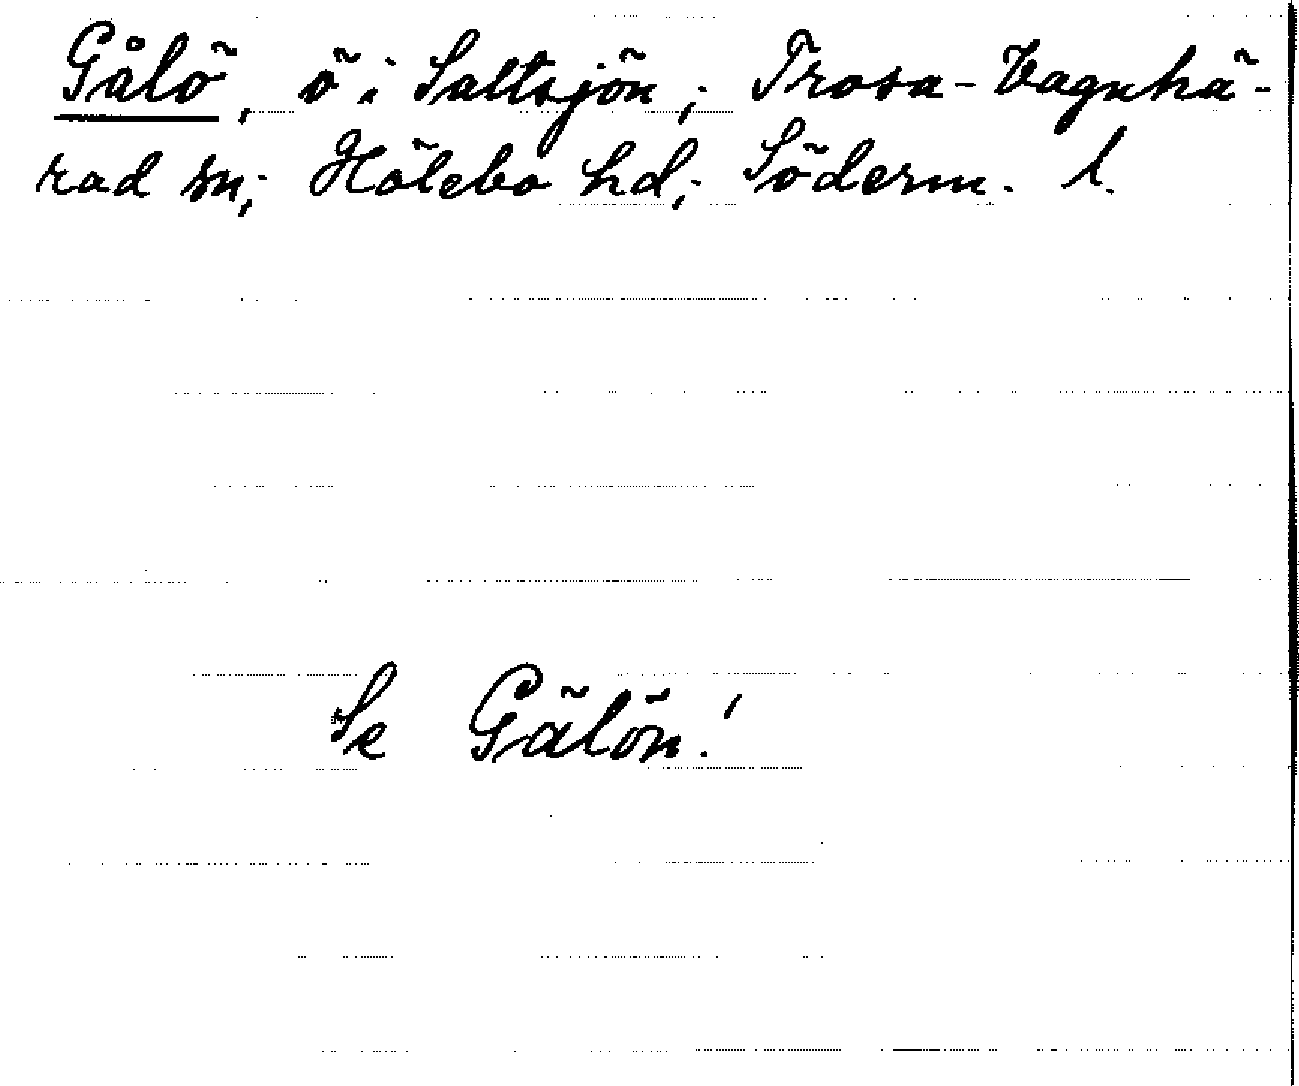 Gålö, ö i Saltsjön; Trosa-Vagnhä-
rad sn; Hölebo hd; Söderm. l.
Se Gälön!